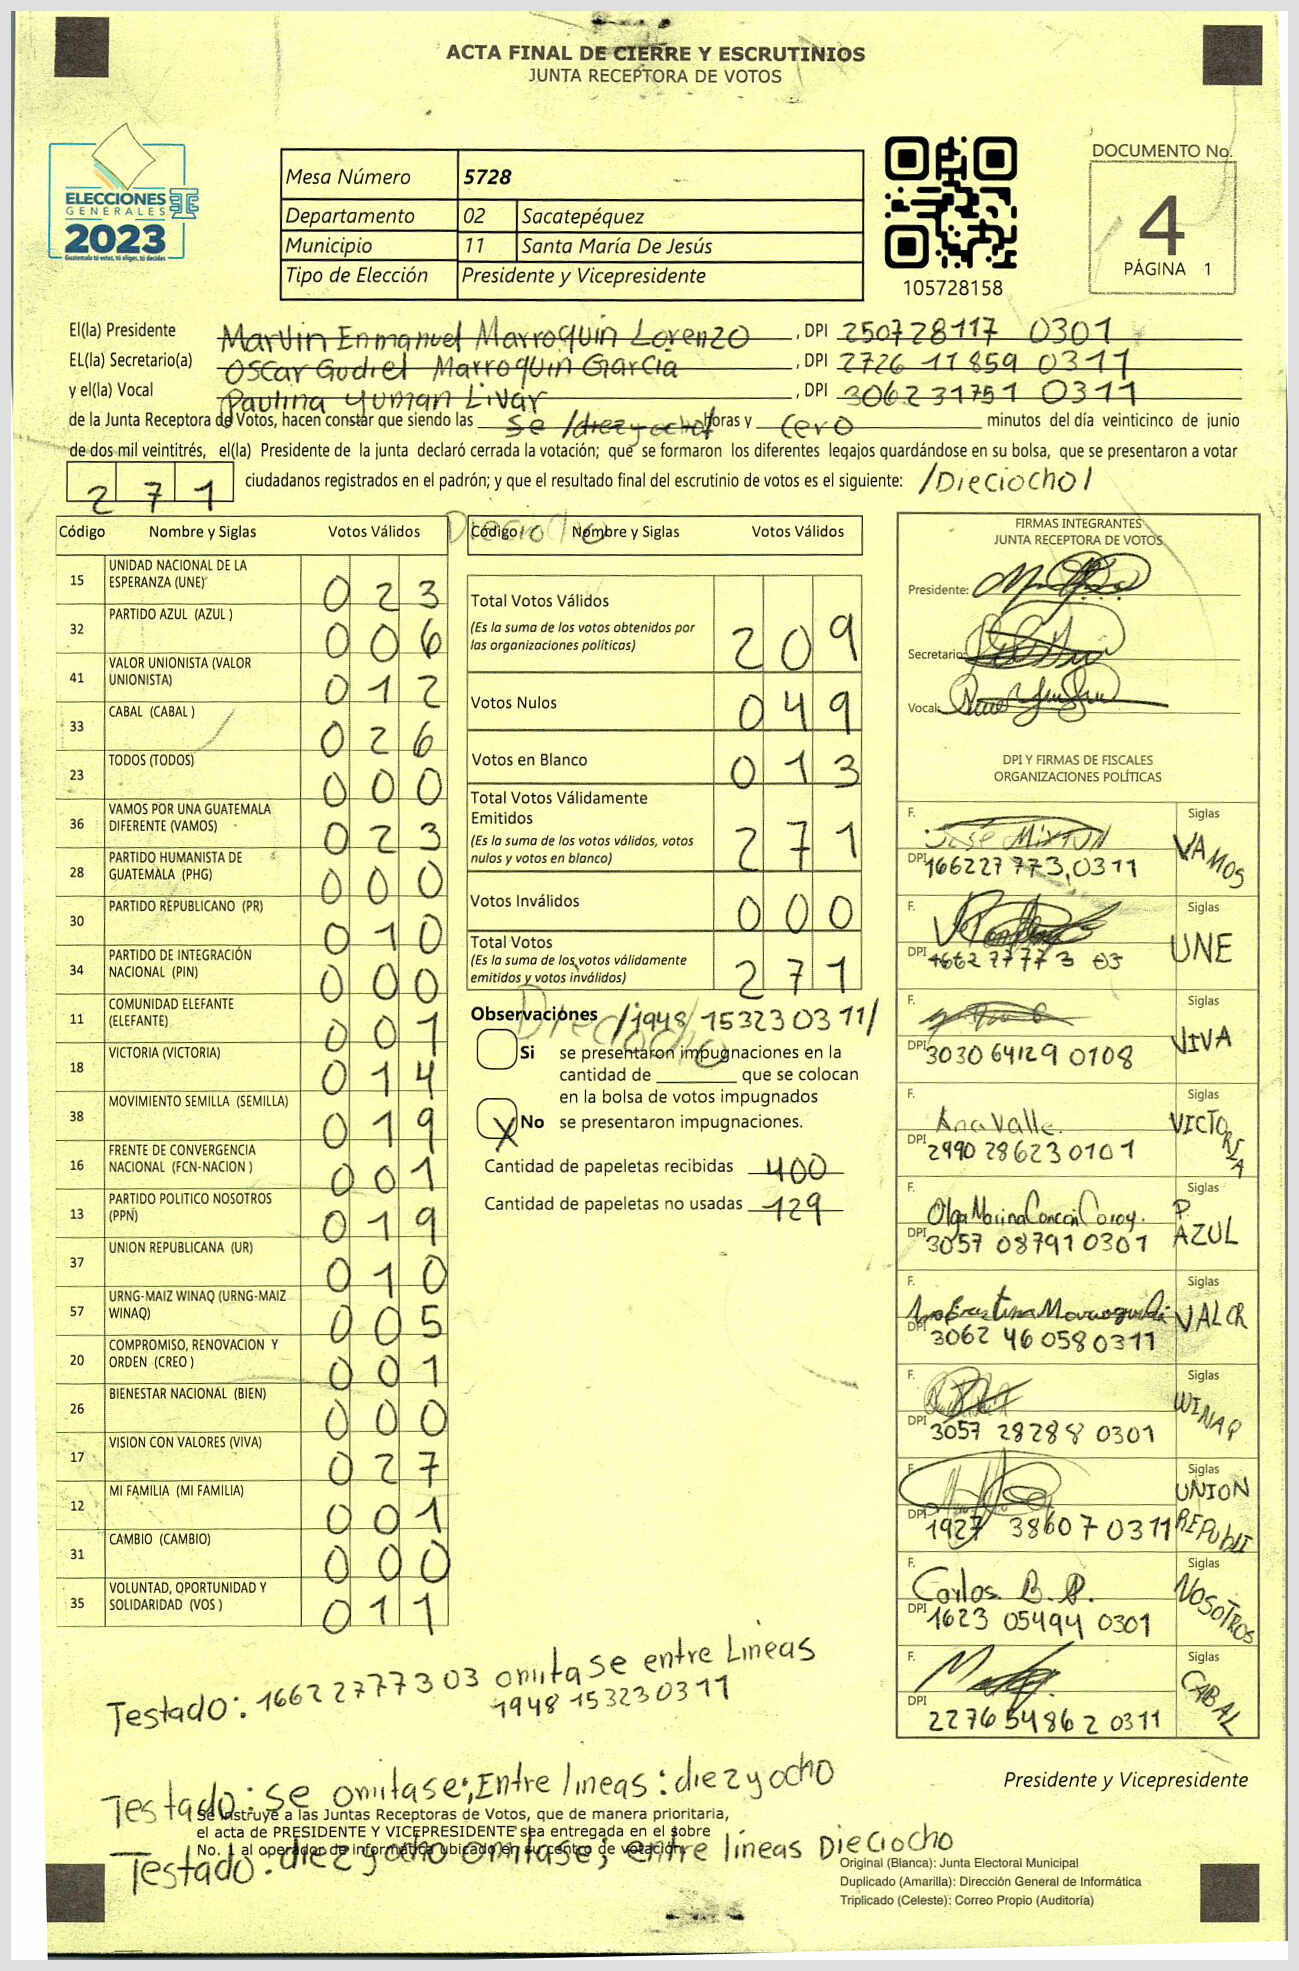 ACTA FINAL DE CIERRE Y ESCRUTINIOS
JUNTA RECEPTORA DE VOTOS
ELECCIONES
GENERALES
2023
Guatemala tú votas, tú eliges, tú decides
Mesa Número 5728
Departamento 02 Sacatepéquez
Municipio 11 Santa María De Jesús
Tipo de Elección Presidente y Vicepresidente
105728158
DOCUMENTO No.
4
PÁGINA 1
El(la) Presidente Marvin Enmanuel Marroquín Lorenzo, DPI 250728117 0301
EL(la) Secretario(a) Oscar Gudiel Marroquin Garcia, DPI 2726 11859 0311
y el(la) Vocal Paulina Yuman Livar, DPI 306231751 0311
de la Junta Receptora de Votos, hacen constar que siendo las se /diezyocho/ horas y cero minutos del día veinticinco de junio
de dos mil veintitrés, el(la) Presidente de la junta declaró cerrada la votación; que se formaron los diferentes legajos guardándose en su bolsa, que se presentaron a votar
271 ciudadanos registrados en el padrón; y que el resultado final del escrutinio de votos es el siguiente: /Dieciocho/
Código Nombre y Siglas Votos Válidos
15 UNIDAD NACIONAL DE LA ESPERANZA (UNE) 023
32 PARTIDO AZUL (AZUL ) 006
41 VALOR UNIONISTA (VALOR UNIONISTA) 012
33 CABAL (CABAL ) 026
23 TODOS (TODOS) 000
36 VAMOS POR UNA GUATEMALA DIFERENTE (VAMOS) 023
28 PARTIDO HUMANISTA DE GUATEMALA (PHG) 000
30 PARTIDO REPUBLICANO (PR) 010
34 PARTIDO DE INTEGRACIÓN NACIONAL (PIN) 000
11 COMUNIDAD ELEFANTE (ELEFANTE) 001
18 VICTORIA (VICTORIA) 014
38 MOVIMIENTO SEMILLA (SEMILLA) 019
16 FRENTE DE CONVERGENCIA NACIONAL (FCN-NACION ) 001
13 PARTIDO POLITICO NOSOTROS (PPN) 019
37 UNION REPUBLICANA (UR) 010
57 URNG-MAIZ WINAQ (URNG-MAIZ WINAQ) 005
20 COMPROMISO, RENOVACION Y ORDEN (CREO ) 001
26 BIENESTAR NACIONAL (BIEN) 000
17 VISION CON VALORES (VIVA) 027
12 MI FAMILIA (MI FAMILIA) 001
31 CAMBIO (CAMBIO) 000
35 VOLUNTAD, OPORTUNIDAD Y SOLIDARIDAD (VOS ) 011
Dieciocho
Código Nombre y Siglas Votos Válidos
Total Votos Válidos 209
(Es la suma de los votos obtenidos por
las organizaciones políticas)
Votos Nulos 049
Votos en Blanco 013
Total Votos Válidamente
Emitidos 271
(Es la suma de los votos válidos, votos
nulos y votos en blanco)
Votos Inválidos 000
Total Votos 271
(Es la suma de los votos válidamente
emitidos y votos inválidos)
Observaciones /1948 15323 0311/
Dieciocho
Si se presentaron impugnaciones en la
cantidad de ________ que se colocan
en la bolsa de votos impugnados
X No se presentaron impugnaciones.
Cantidad de papeletas recibidas 400
Cantidad de papeletas no usadas 129
FIRMAS INTEGRANTES
JUNTA RECEPTORA DE VOTOS
Presidente:
Secretario:
Vocal:
DPI Y FIRMAS DE FISCALES
ORGANIZACIONES POLÍTICAS
F. José Mixtun Siglas
DPI 166227773,0311 VAMOS
F. Siglas
DPI 1662 27773 03 UNE
F. Siglas
DPI 3030 64129 0108 VIVA
F. Ana Valle. Siglas
DPI 2990 28623 0101 VICTORIA
F. Olga Marina Siglas
DPI 3057 08791 0301 P. AZUL
F. Siglas
DPI 3062 46058 0311 VALOR
F. Siglas
DPI 3057 28288 0301 WINAQ
F. Siglas
DPI 1927 38607 0311 UNION REPUBLI
F. Carlos B. P. Siglas
DPI 1623 05494 0301 NOSOTROS
F. Siglas
DPI 2276 54862 0311 CABAL
Testado: 16622777303 omitase entre Lineas
1948 15323 0311
Testado: se omitase; Entre lineas: diezyocho
Presidente y Vicepresidente
Se instruye a las Juntas Receptoras de Votos, que de manera prioritaria,
el acta de PRESIDENTE Y VICEPRESIDENTE sea entregada en el sobre
No. 1 al operador de informática ubicado en su centro de votación.
Testado: diezyocho omitase; entre líneas Dieciocho
Original (Blanca): Junta Electoral Municipal
Duplicado (Amarilla): Dirección General de Informática
Triplicado (Celeste): Correo Propio (Auditoría)